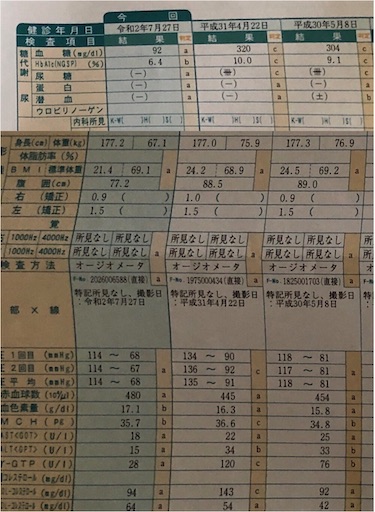 今 回
健診年月日 令和2年7月27日 平成31年4月22日 平成30年5月8日
検査項目 結果 判定 結果 判定 結果 判定
糖代謝 血糖(mg/dl) 92 a 320 c 304 c
HbA1c(NGSP) (%) 6.4 b 10.0 c 9.1 c
尿 尿糖 (ー) a c c
蛋白 (ー) a (ー) a (ー) a
潜血 (ー) a (ー) a (±) b
ウロビリノーゲン
内科所見 K-W[ ]H[ ]S[ ] K-W[ ]H[ ]S[ ] K-W[ ]H[ ]S[ ]
身長(cm) 体重(kg) 177.2 67.1 177.0 75.9 177.3 76.9
体脂肪率(%)
BMI 標準体重 21.4 69.1 a 24.2 68.9 a 24.5 69.2 a
腹囲(cm) 77.2 88.5 89.0
右(矯正) 0.9 ( ) 1.0 ( ) 0.9 ( )
左(矯正) 1.5 ( ) 1.5 ( ) 1.5 ( )
1000Hz 4000Hz 所見なし 所見なし 所見なし 所見なし 所見なし 所見なし
1000Hz 4000Hz 所見なし 所見なし a 所見なし 所見なし a 所見なし 所見なし a
検査方法 オージオメータ オージオメータ オージオメータ
F-No. 2026006588(直接) a F-No. 1975000434(直接) a F-No. 1825001703(直接) a
特記所見なし、撮影日 特記所見なし、撮影日 特記所見なし、撮影日
:令和2年7月27日 :平成31年4月22日 :平成30年5月8日
部X線
1回目(mmHg) 114 〜 68 134 〜 90 118 〜 81
2回目(mmHg) 114 〜 67 a 136 〜 92 c 117 〜 81 a
平均(mmHg) 114 〜 68 135 〜 91 118 〜 81
赤血球数(10⁴/μl) 480 a 445 a 454 a
血色素量(g/dl) 17.1 b 16.3 a 15.8 a
MCH(Pg) 35.7 b 36.6 c 34.8 b
AST<GOT>(U/l) 18 a 22 a 25 a
ALT<GPT>(U/l) 15 a 34 b 33 b
γ-GTP(U/l) 28 a 120 c 76 b
(mg/dl)
(mg/dl) 94 a 143 c 92 a
(mg/dl) 64 a 54 a 42 a